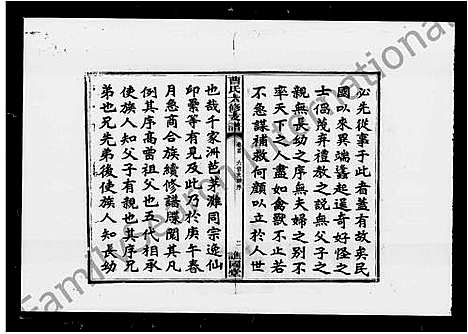 必先從事于此者蓋有故矣民
國以來異端蠭起逞奇好怪之
士倡茂弃禮教之說無父子之
親無長幼之序無夫婦之別不
率天下之人盡如禽獸不止若
不急謀補救何顏以立於人世
曹氏六修支譜
二
譙國堂
也哉千家洲芭茅灘同宗逸仙
印榮等有見及此乃於庚午春
月急商合族續修譜牒閱其凡
例其序高曾祖父也五代相承
使族人知父子有親也其序兄
弟也兄先弟後使族人知長幼
FamilySearch International